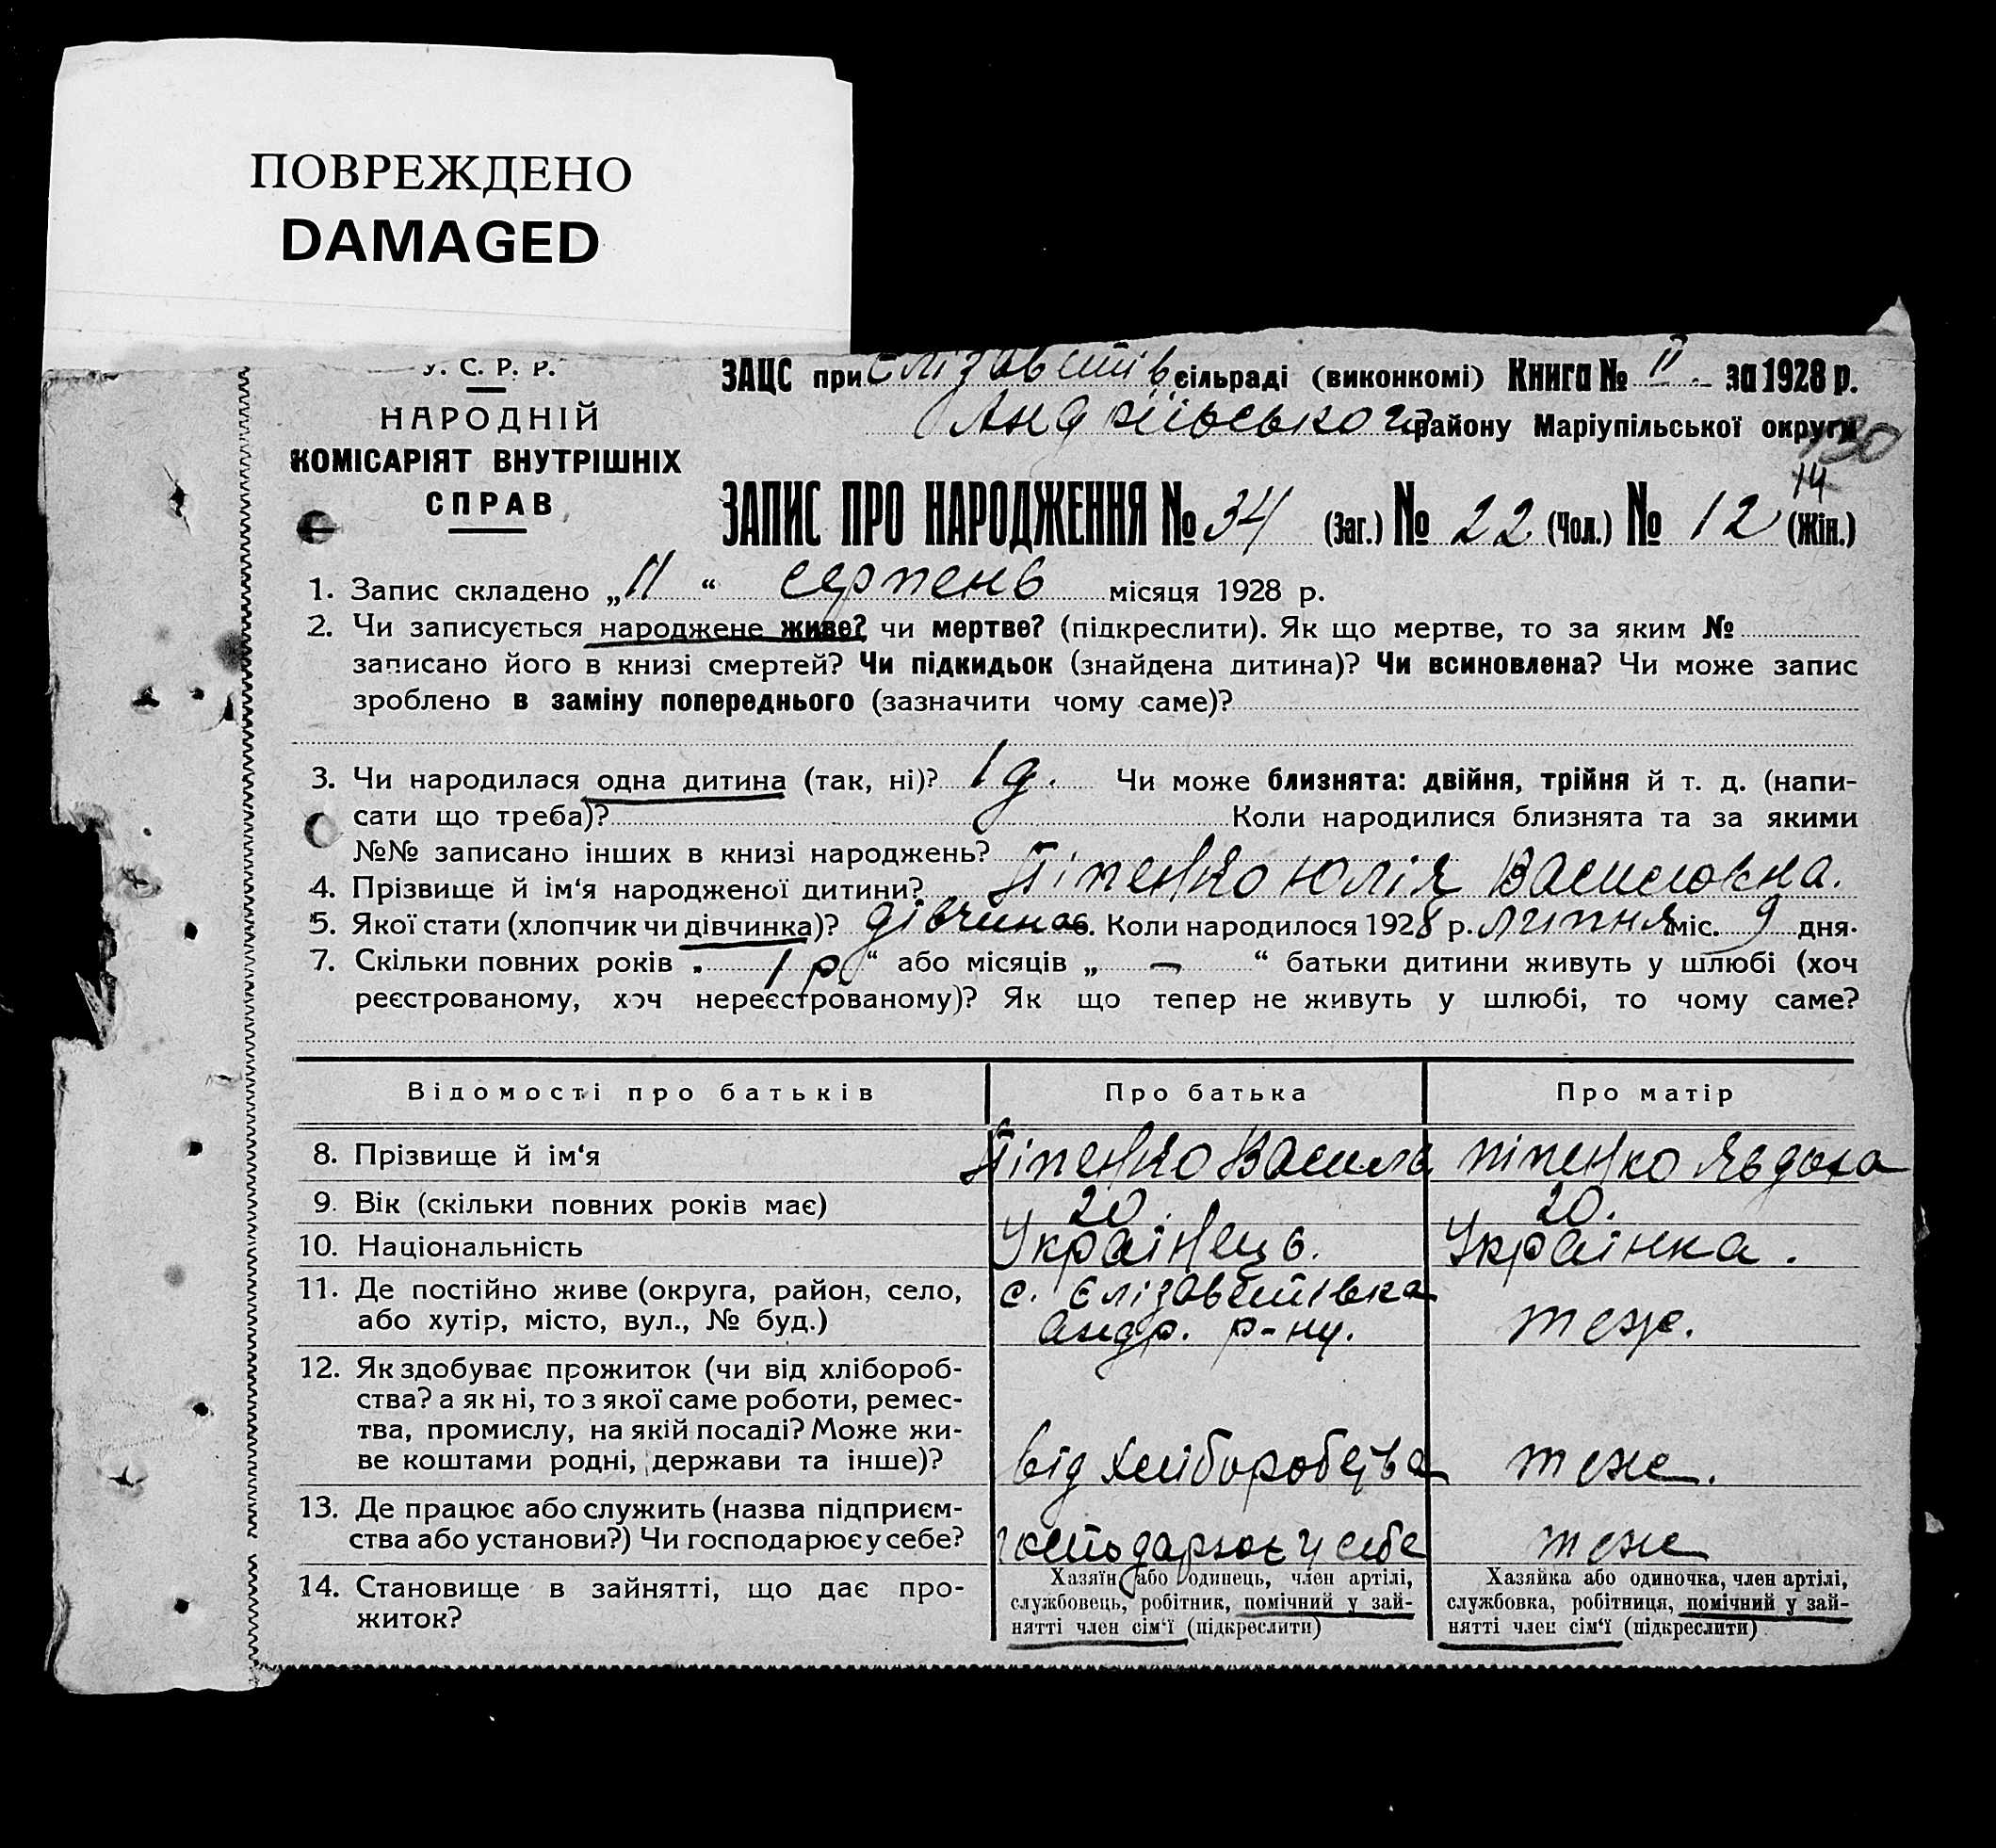 ПОВРЕЖДЕНО
DAMAGED
У. С. Р. Р.
НАРОДНІЙ
КОМІСАРІЯТ ВНУТРІШНІХ
СПРАВ
ЗАЦС при Єлізаветів сільраді (виконкомі) Книга № II за 1928 р.
Андріївського району Маріупільської округи
30
14
ЗАПИС ПРО НАРОДЖЕННЯ № 34 (Заг.) № 22 (Чол.) № 12 (Жін.)
1. Запис складено „11“ серпень місяця 1928 р.
2. Чи записується народжене живе? чи мертве? (підкреслити). Як що мертве, то за яким №
записано його в книзі смертей? Чи підкидьок (знайдена дитина)? Чи всиновлена? Чи може запис
зроблено в заміну попереднього (зазначити чому саме)?
3. Чи народилася одна дитина (так, ні)? 1 д. Чи може близнята: двійня, трійня й т. д. (напи-
сати що треба)? Коли народилися близнята та за якими
№№ записано інших в книзі народжень?
4. Прізвище й ім‘я народженої дитини? Піпенко Юлія Василовна.
5. Якої стати (хлопчик чи дівчинка)? дівчина 6. Коли народилося 1928 р. липня міс. 9 дня.
7. Скільки повних років „ 1 р “ або місяців „ – “ батьки дитини живуть у шлюбі (хоч
реєстрованому, хоч нереєстрованому)? Як що тепер не живуть у шлюбі, то чому саме?
Відомості про батьків Про батька Про матір
8. Прізвище й ім‘я Піпенко Василь піпенко Явдоха
9. Вік (скільки повних років має) 20. 20.
10. Національність Українець. Українка.
11. Де постійно живе (округа, район, село, с. Єлізаветівка
або хутір, місто, вул., № буд.) Андр. р-ну. теж.
12. Як здобуває прожиток (чи від хлібороб-
ства? а як ні, то з якої саме роботи, ремес-
тва, промислу, на якій посаді? Може жи-
ве коштами родні, держави та інше)? від хліборобства теже.
13. Де працює або служить (назва підприєм-
ства або установи?) Чи господарює у себе? господарює у себе теже
14. Становище в зайнятті, що дає про-
житок?
Хазяїн або одинець, член артілі,
службовець, робітник, помічний у зай-
нятті член сім‘ї (підкреслити)
Хазяйка або одиночка, член артілі,
службовка, робітниця, помічний у зай-
нятті член сім‘ї (підкреслити)